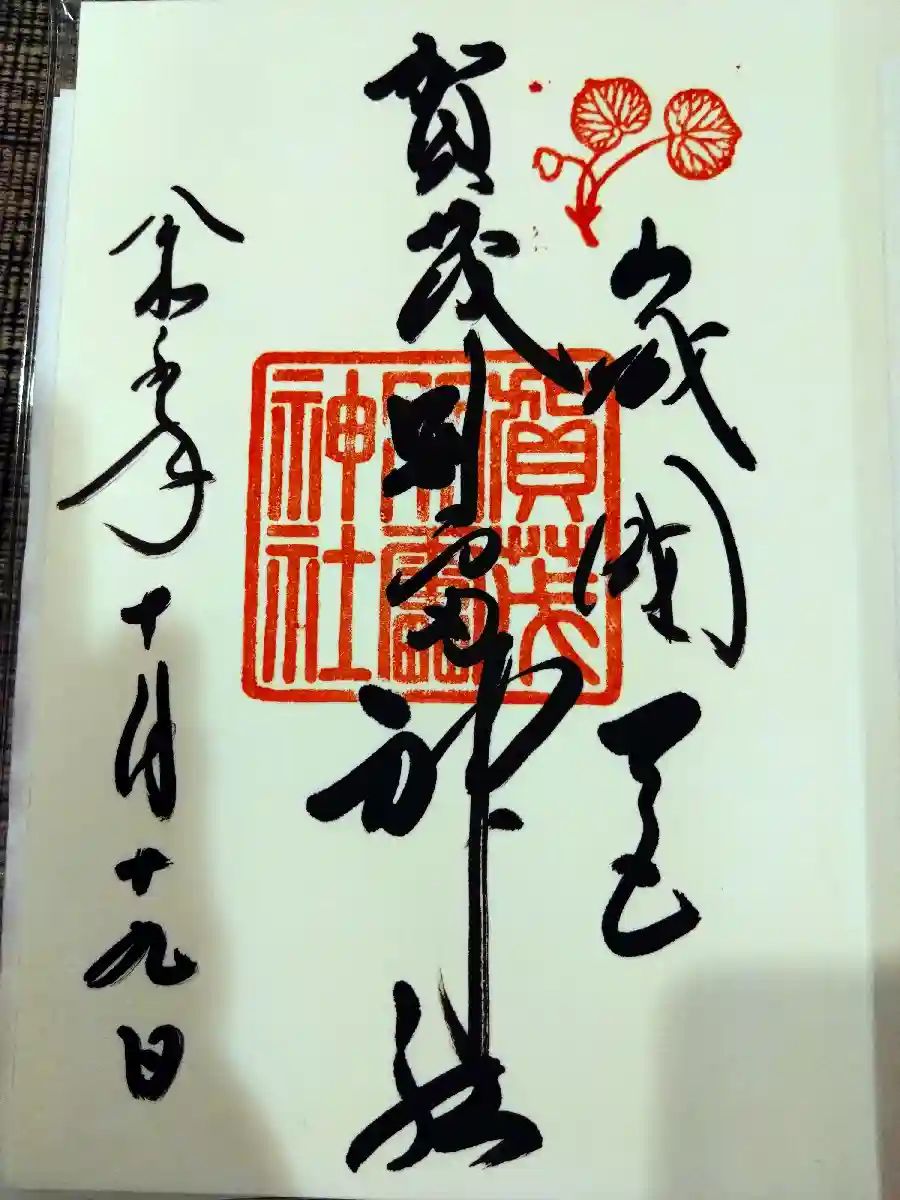 山城國一宮
賀茂別雷神社
令和年十月十九日
賀茂
別雷
神社